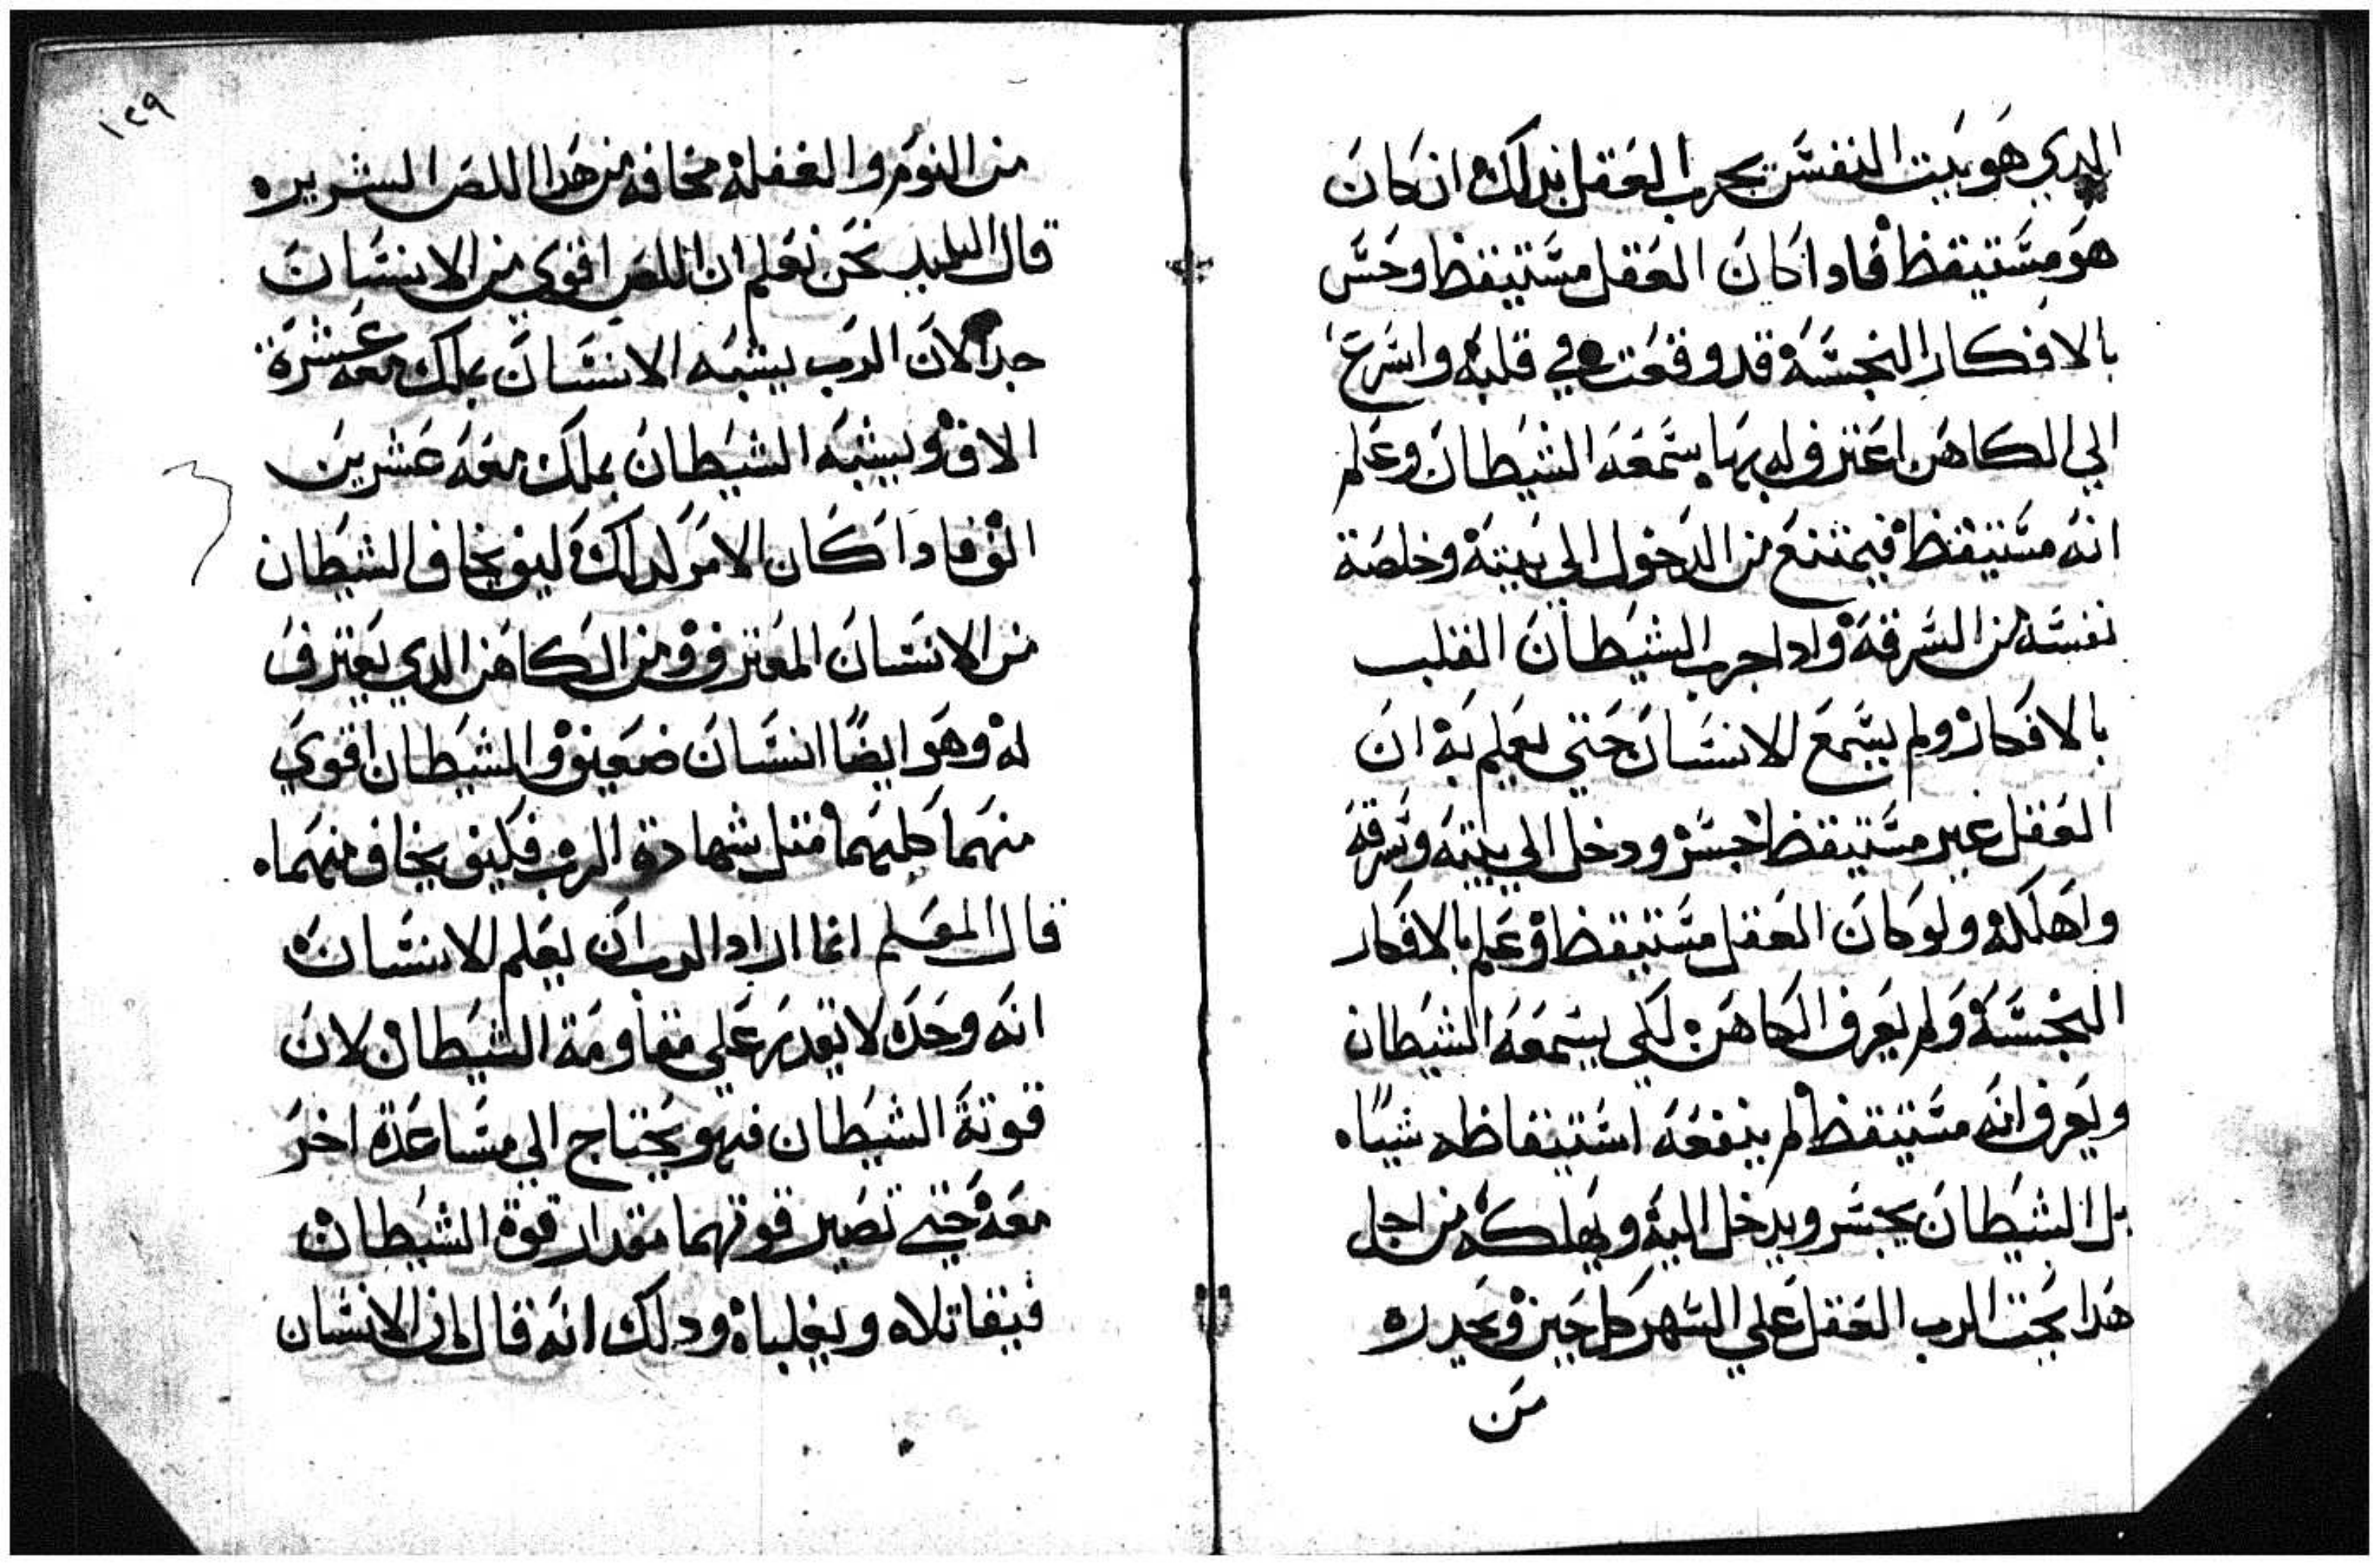 الدي هو بيت النفس يجرب العقل بدلك ان كان
هو مستيقظ فادا كان العقل مستيقظ وحس
بالافكار النجسه قد وقعت في قلبه واسرع
الي الكاهن اعترف له بها يسمعه الشيطان وعلم
انه مستيقظ فيمتنع من الدخول الي بيته وخلصة
نفسه من السرقه وادا جرب الشيطان القلب
بالافكار ولم يسمع للانسان حتي يعلم به ان
العقل غير مستيقظ جسر ودخل الي بيته وسرقه
واهلكه ولو كان العقل مستيقظ وعلم بالافكار
النجسه ولم يعرف الكاهن لكي يسمعه الشيطان
ويعرف انه مستيقظ لم ينفعه استيقاظه شياه
بل الشيطان يجسر ويدخل اليه ويهلكه من اجل
هدا يحت الرب العقل علي السهر كل حين ويحدره
من
١٢٩
من النوم والغفله مخافه من هدا اللص الشريره
قال التلميد نحن نعلم ان اللص اقوي من الانسان
جدا لان الرب يشبه الانسان بملك معه عشرة
الاف ويشبه الشيطان بملك معه عشرين
الف فادا كان الامر كدلك كيف يخاف الشيطان
من الانسان المعترف ومن الكاهن الدي يعترف
له وهو ايضا انسان ضعيف والشيطان اقوي
منهما كليهما متل شهادة الرب فكيف يخاف منهماه
قال المعلم انما اراد الرب ان يعلم الانسان
انه وحده لا يقدر علي مقاومة الشيطان لان
قوته الشيطان فهو يحتاج الي مساعدة اخر
معه حتي تصير قوتهما مقدار قوة الشيطان
فيقاتلاه ويغلباه ودلك انه قال ان الانسان